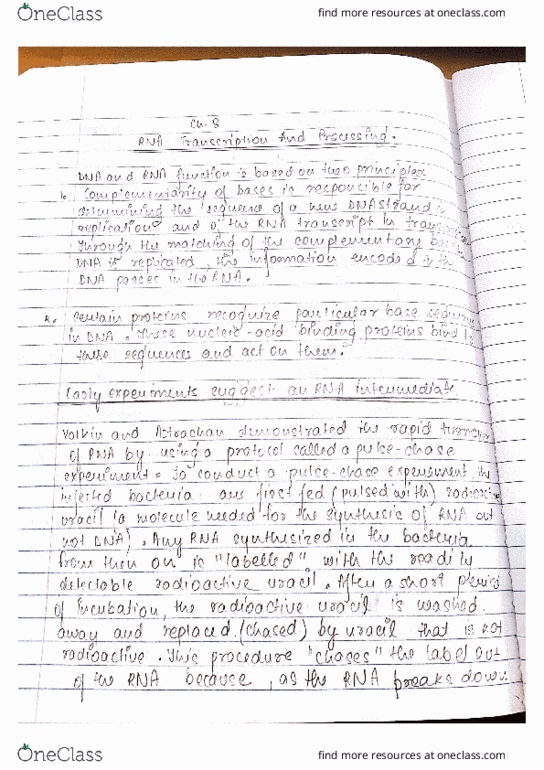 OneClass
find more resources at oneclass.com
Ch. 8
RNA Transcription And Processing.
DNA and RNA function is based on two principles
1. Complementarity of bases is responsible for
determining the sequence of a new DNA strand in
replication and of the RNA transcript in
Through the matching of the complementary
DNA is replicated, the information encoded in the
DNA passes in the RNA.
2. Certain proteins recognize particular base
in DNA. These nucleic-acid binding proteins bind to
these sequences and act on them.
Early experiments suggest an RNA intermediate
Volkin and Astrachan demonstrated the rapid turnover
of RNA by using a protocol called a pulse-chase
experiment. To conduct a pulse-chase experiment, the
infected bacteria are first fed (pulsed with)
uracil (a molecule needed for the synthesis of RNA but
not DNA). Any RNA synthesized in the bacteria
from then on is "labelled" with the readily
detectable radioactive uracil. After a short period
of incubation, the radioactive uracil is washed
away and replaced (chased) by uracil that is not
radioactive. This procedure "chases" the label out
of the RNA because, as the RNA breaks down
OneClass
find more resources at oneclass.com